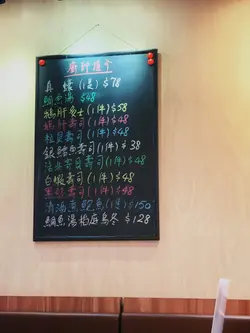 廚師推介
真蠔(1隻)$78
鯛魚湯 $48
鵝肝多士(1件)$58
鵝肝壽司(1件)$48
壽司(1件)$48
銀鱈魚壽司(1件)$38
壽司(1件)$48
白蝦壽司(1件)$48
壽司(1件)$48
清酒煮鮑魚(1隻)$150
鯛魚湯稻庭烏冬 $128